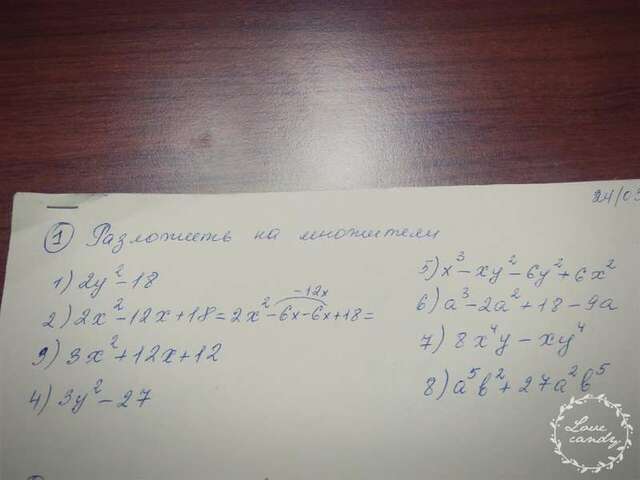 24/03
① Разложить на множители
1) 2y²-18
2) 2x²-12x+18=2x²-6x-6x+18=
-12x
3) 3x²+12x+12
4) 3y²-27
5) x³-xy²-6y²+6x²
6) a³-2a²+18-9a
7) 8x⁴y-xy⁴
8) a⁵b²+27a²b⁵
Love
candy